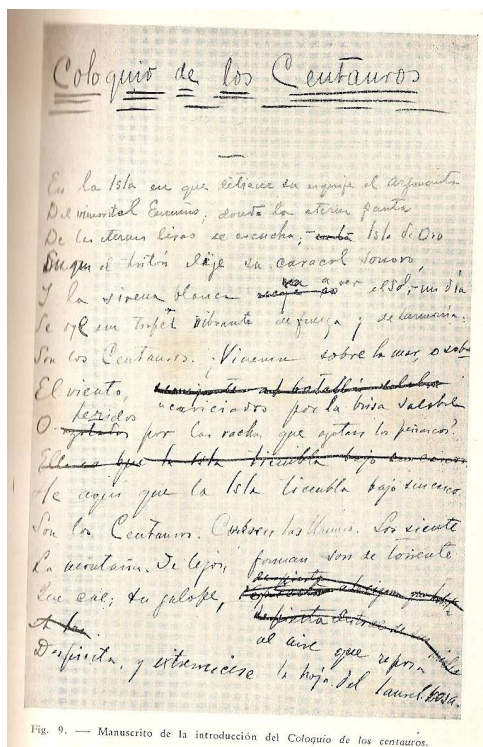 Coloquio de los Centauros
En la Isla en que detiene su esquife el argonauta
Del inmortal Ensueño, donde la eterna pauta
De las eternas liras se escucha, – Isla de Oro
En que el tritón elige su caracol sonoro,
Y la sirena blanca va a ver el sol, – un día
Se oye un tropel vibrante de fuerza y de harmonía.
Son los Centauros. ¿Vinieron sobre la mar, o sobre
El viento,
acariciados por la brisa salobre
O heridos por las rachas que azotan los peñascos?
He aquí que la Isla tiembla bajo sus cascos.
Son los Centauros. Cubren las llanuras. Los siente
La montaña. De lejos, forman son de torrente
Que cae; su galope,
al aire que reposa
Despierta, y estremece la hoja del laurel-rosa.
Fig. 9. — Manuscrito de la introducción del Coloquio de los centauros.